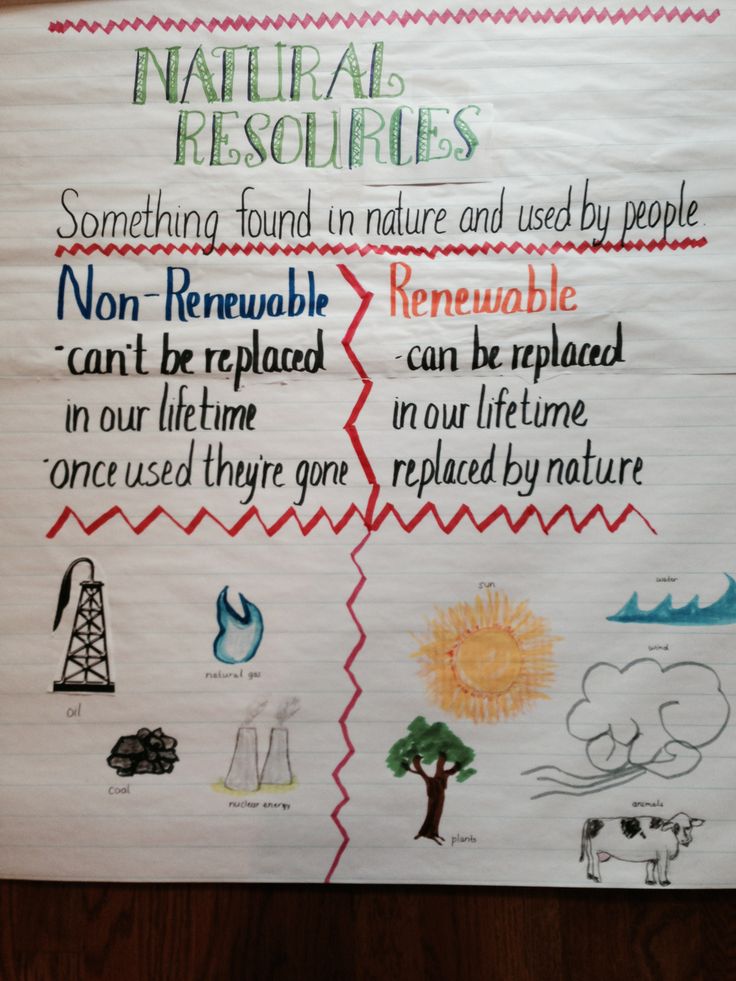 NATURAL
RESOURCES
Something found in nature and used by people.
Non-Renewable
-can't be replaced
in our lifetime
-once used they're gone
Renewable
-can be replaced
in our lifetime
replaced by nature
oil
natural gas
coal
nuclear energy
sun
water
wind
plants
animals